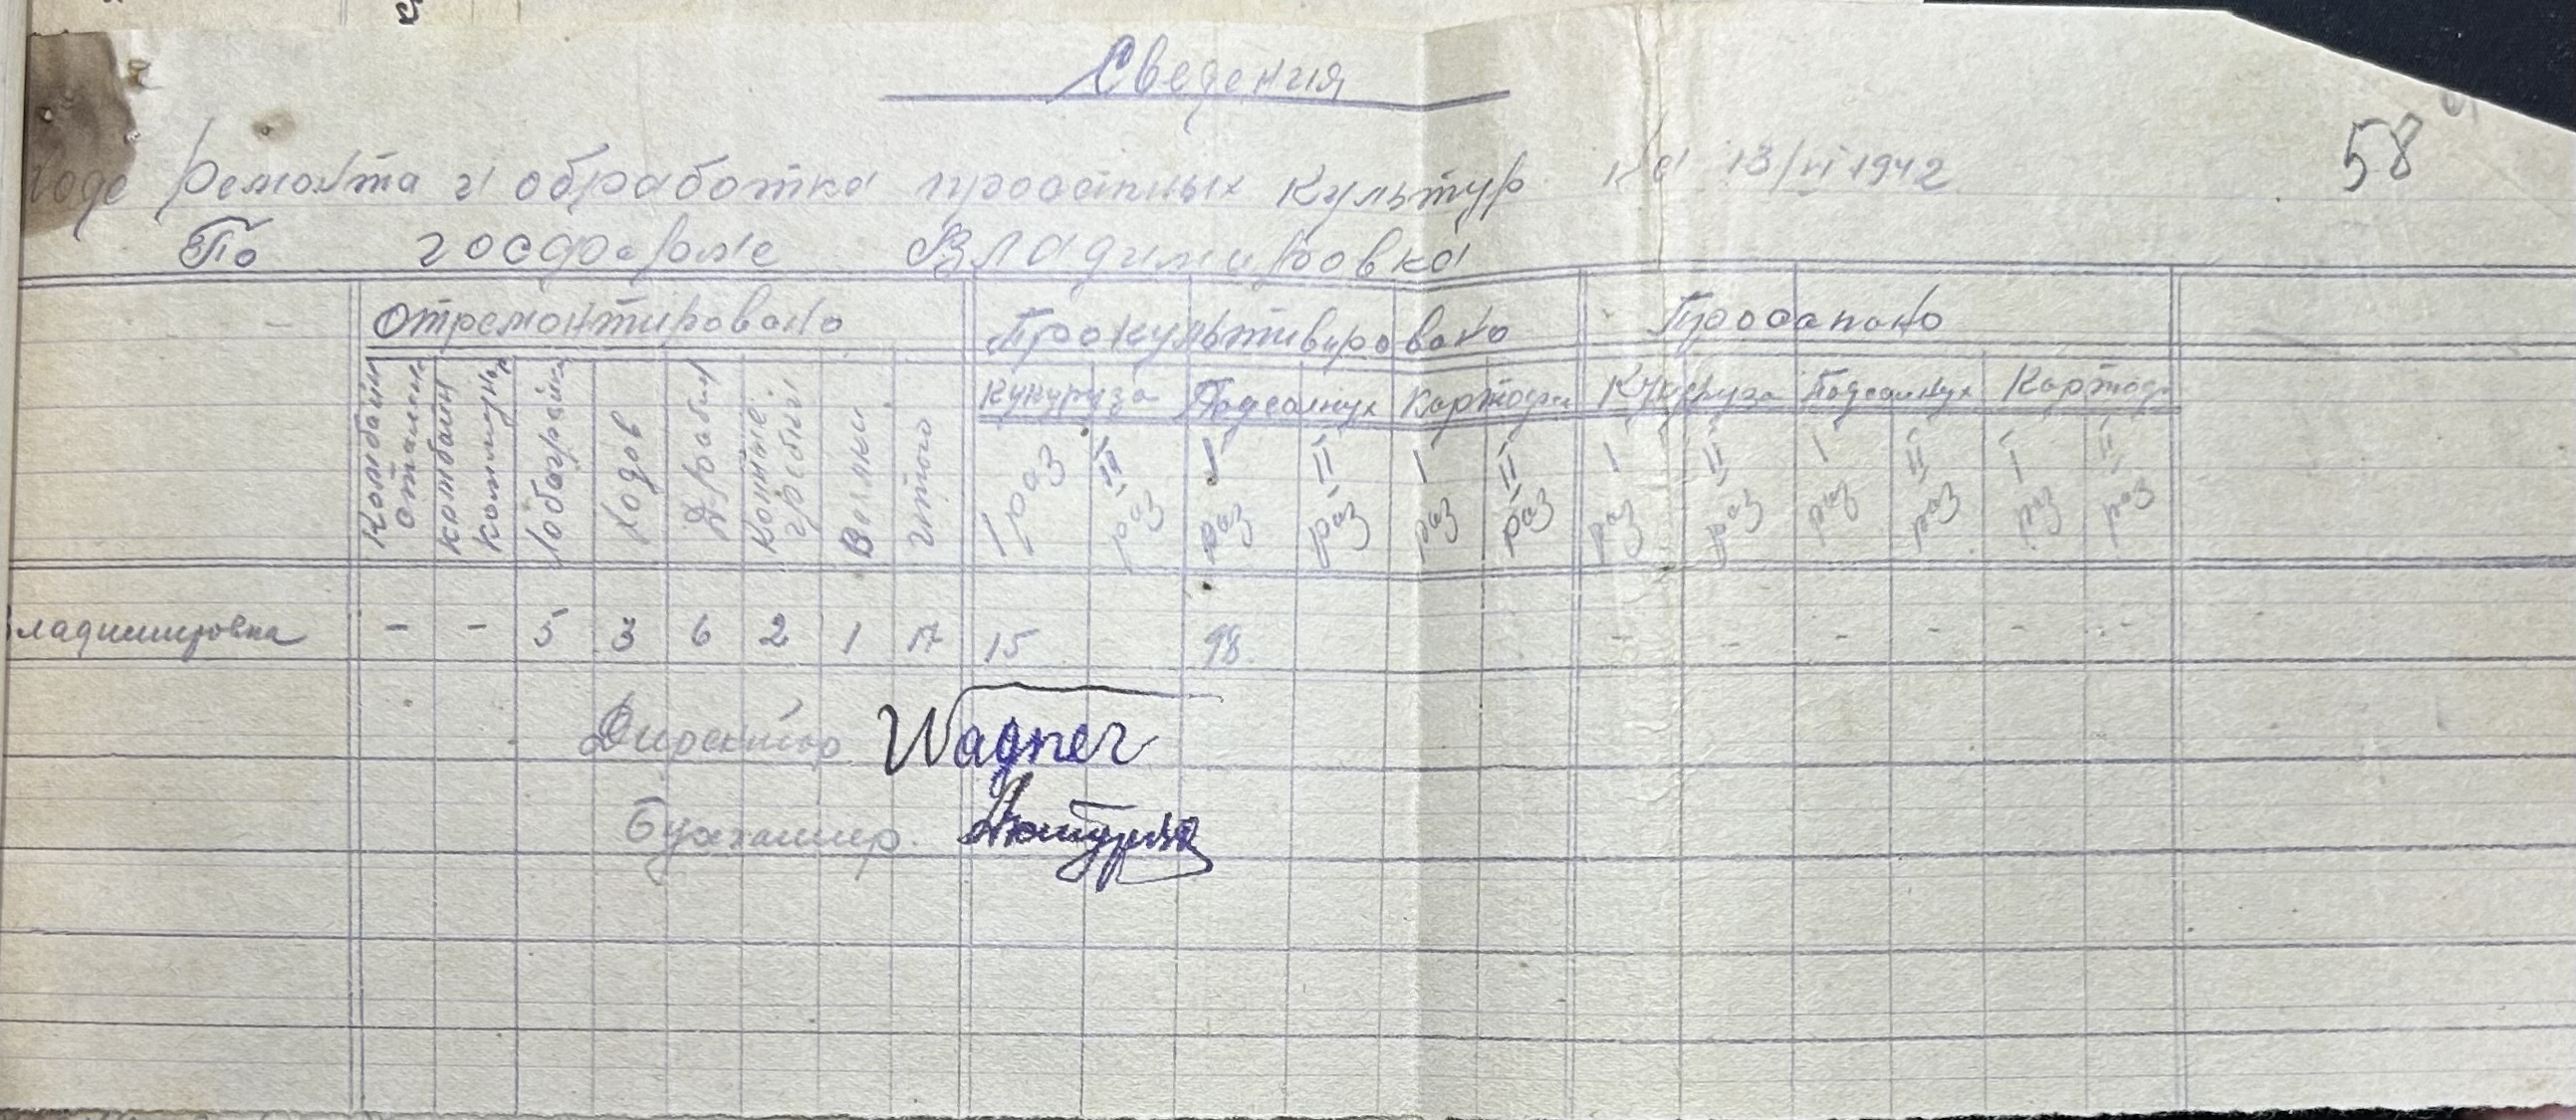 Сведения
ходе ремонта и обработка просапных культур на 13/VI 1942
58
По госфарме Владимировка
Отремонтировано Прокультивировано Просапано
Кукуруза Подсолнух Картофел Кукуруза Подсолнух Картоф
Комбайн Сталин комбайн Коммунар Лобогрейки Ходов Дробин Конные гребки Веялки итого I раз II раз I раз II раз I раз II раз I раз II раз I раз II раз I раз II раз
ладимировка - - 5 3 6 2 1 17 15 98. - - - - - -
Директор Wagner
Бухгалтер.